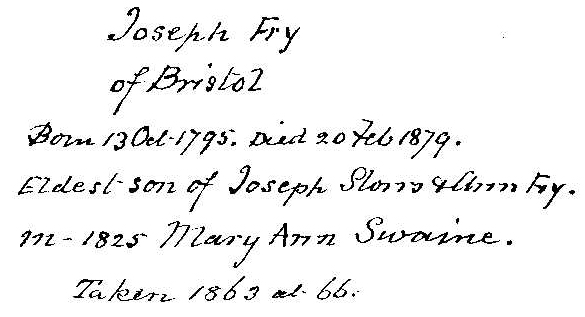 Joseph Fry
of Bristol
Born 13 Oct 1795. Died 20 Feb 1879.
Eldest son of Joseph Storrs & Ann Fry.
m - 1825 Mary Ann Swaine.
Taken 1863 at 66.